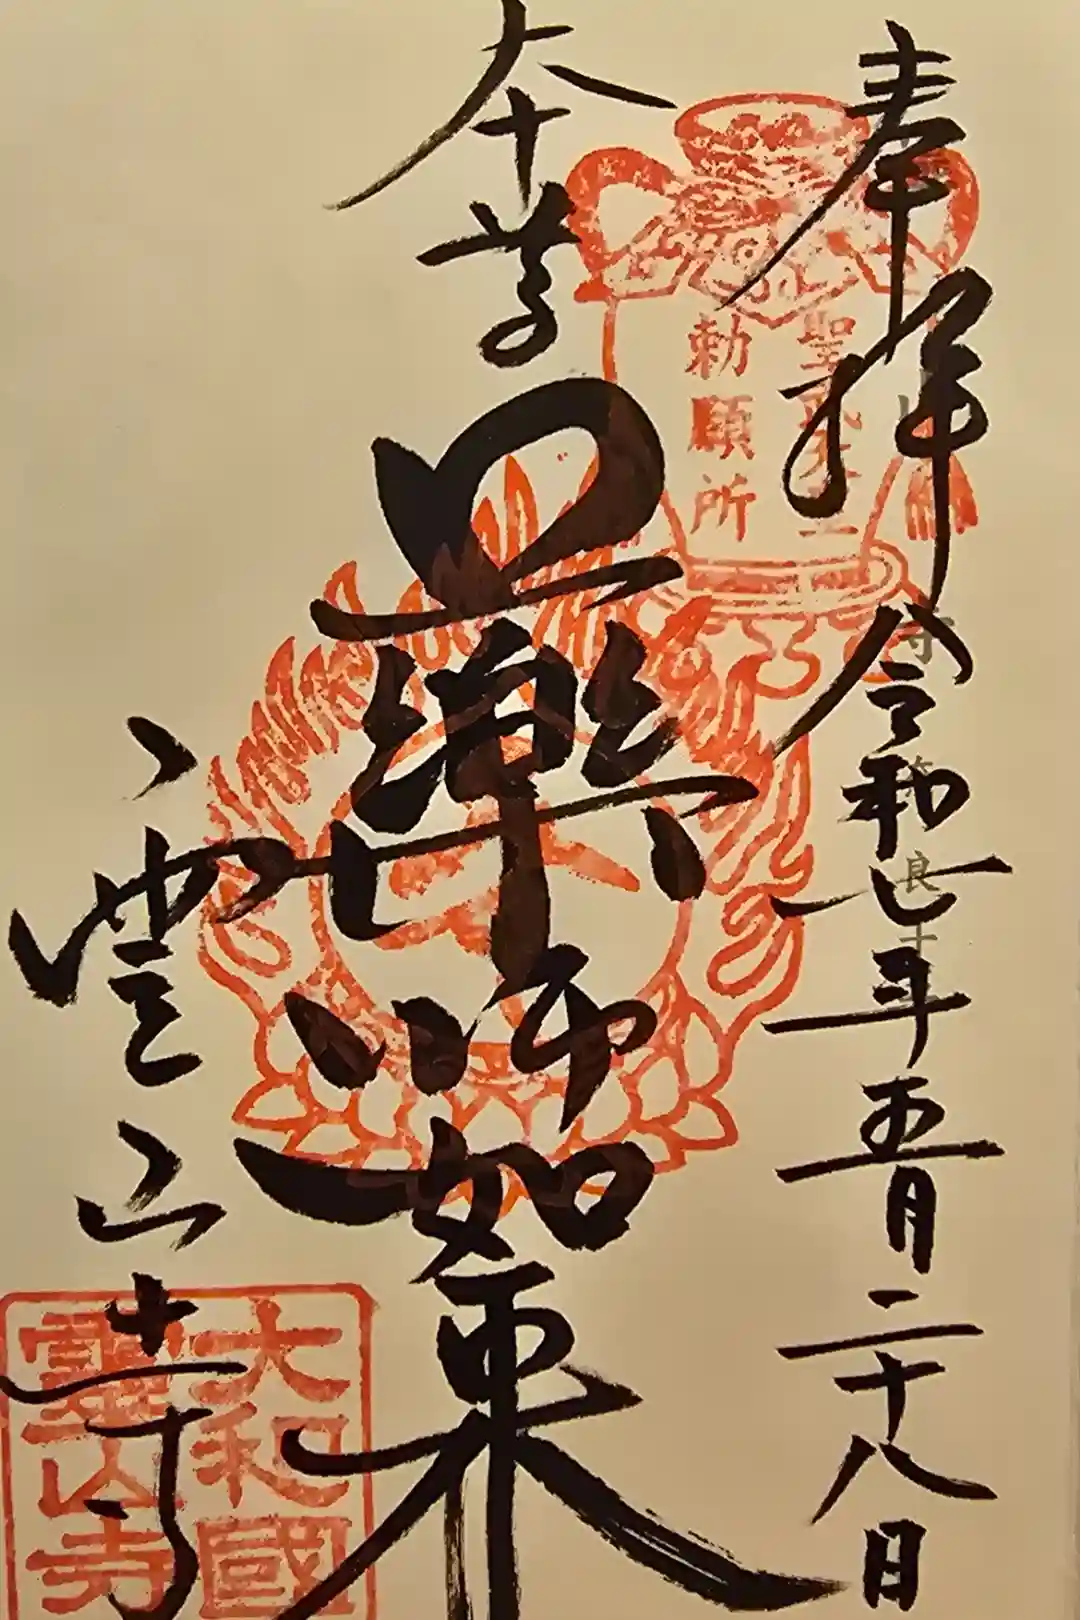 奉拝
令和七年五月二十八日
聖武天皇
勅願所
本尊
藥師如来
霊山寺
大和國
靈山寺